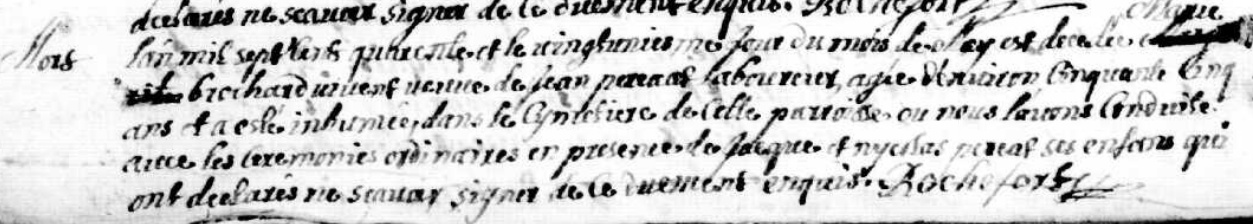 declarés ne scavoir signer de ce duement enquis. Rochefort
Marie
Mors
L'an mil sept cents quarente et le vingt uniesme Jour du mois de May est decedée
brechard vivent veuve de Jean pereat laboureur, agée d'environ Cinquante Cinq
ans et a esté inhumée dans le Cymetiere de Celle parroisse ou nous lavons Conduite
avec les Ceremonies ordinaires en presence de Jacque et nycolas pereat ses enfans qui
ont declarés ne scavoir signer de ce duement enquis. Rochefort